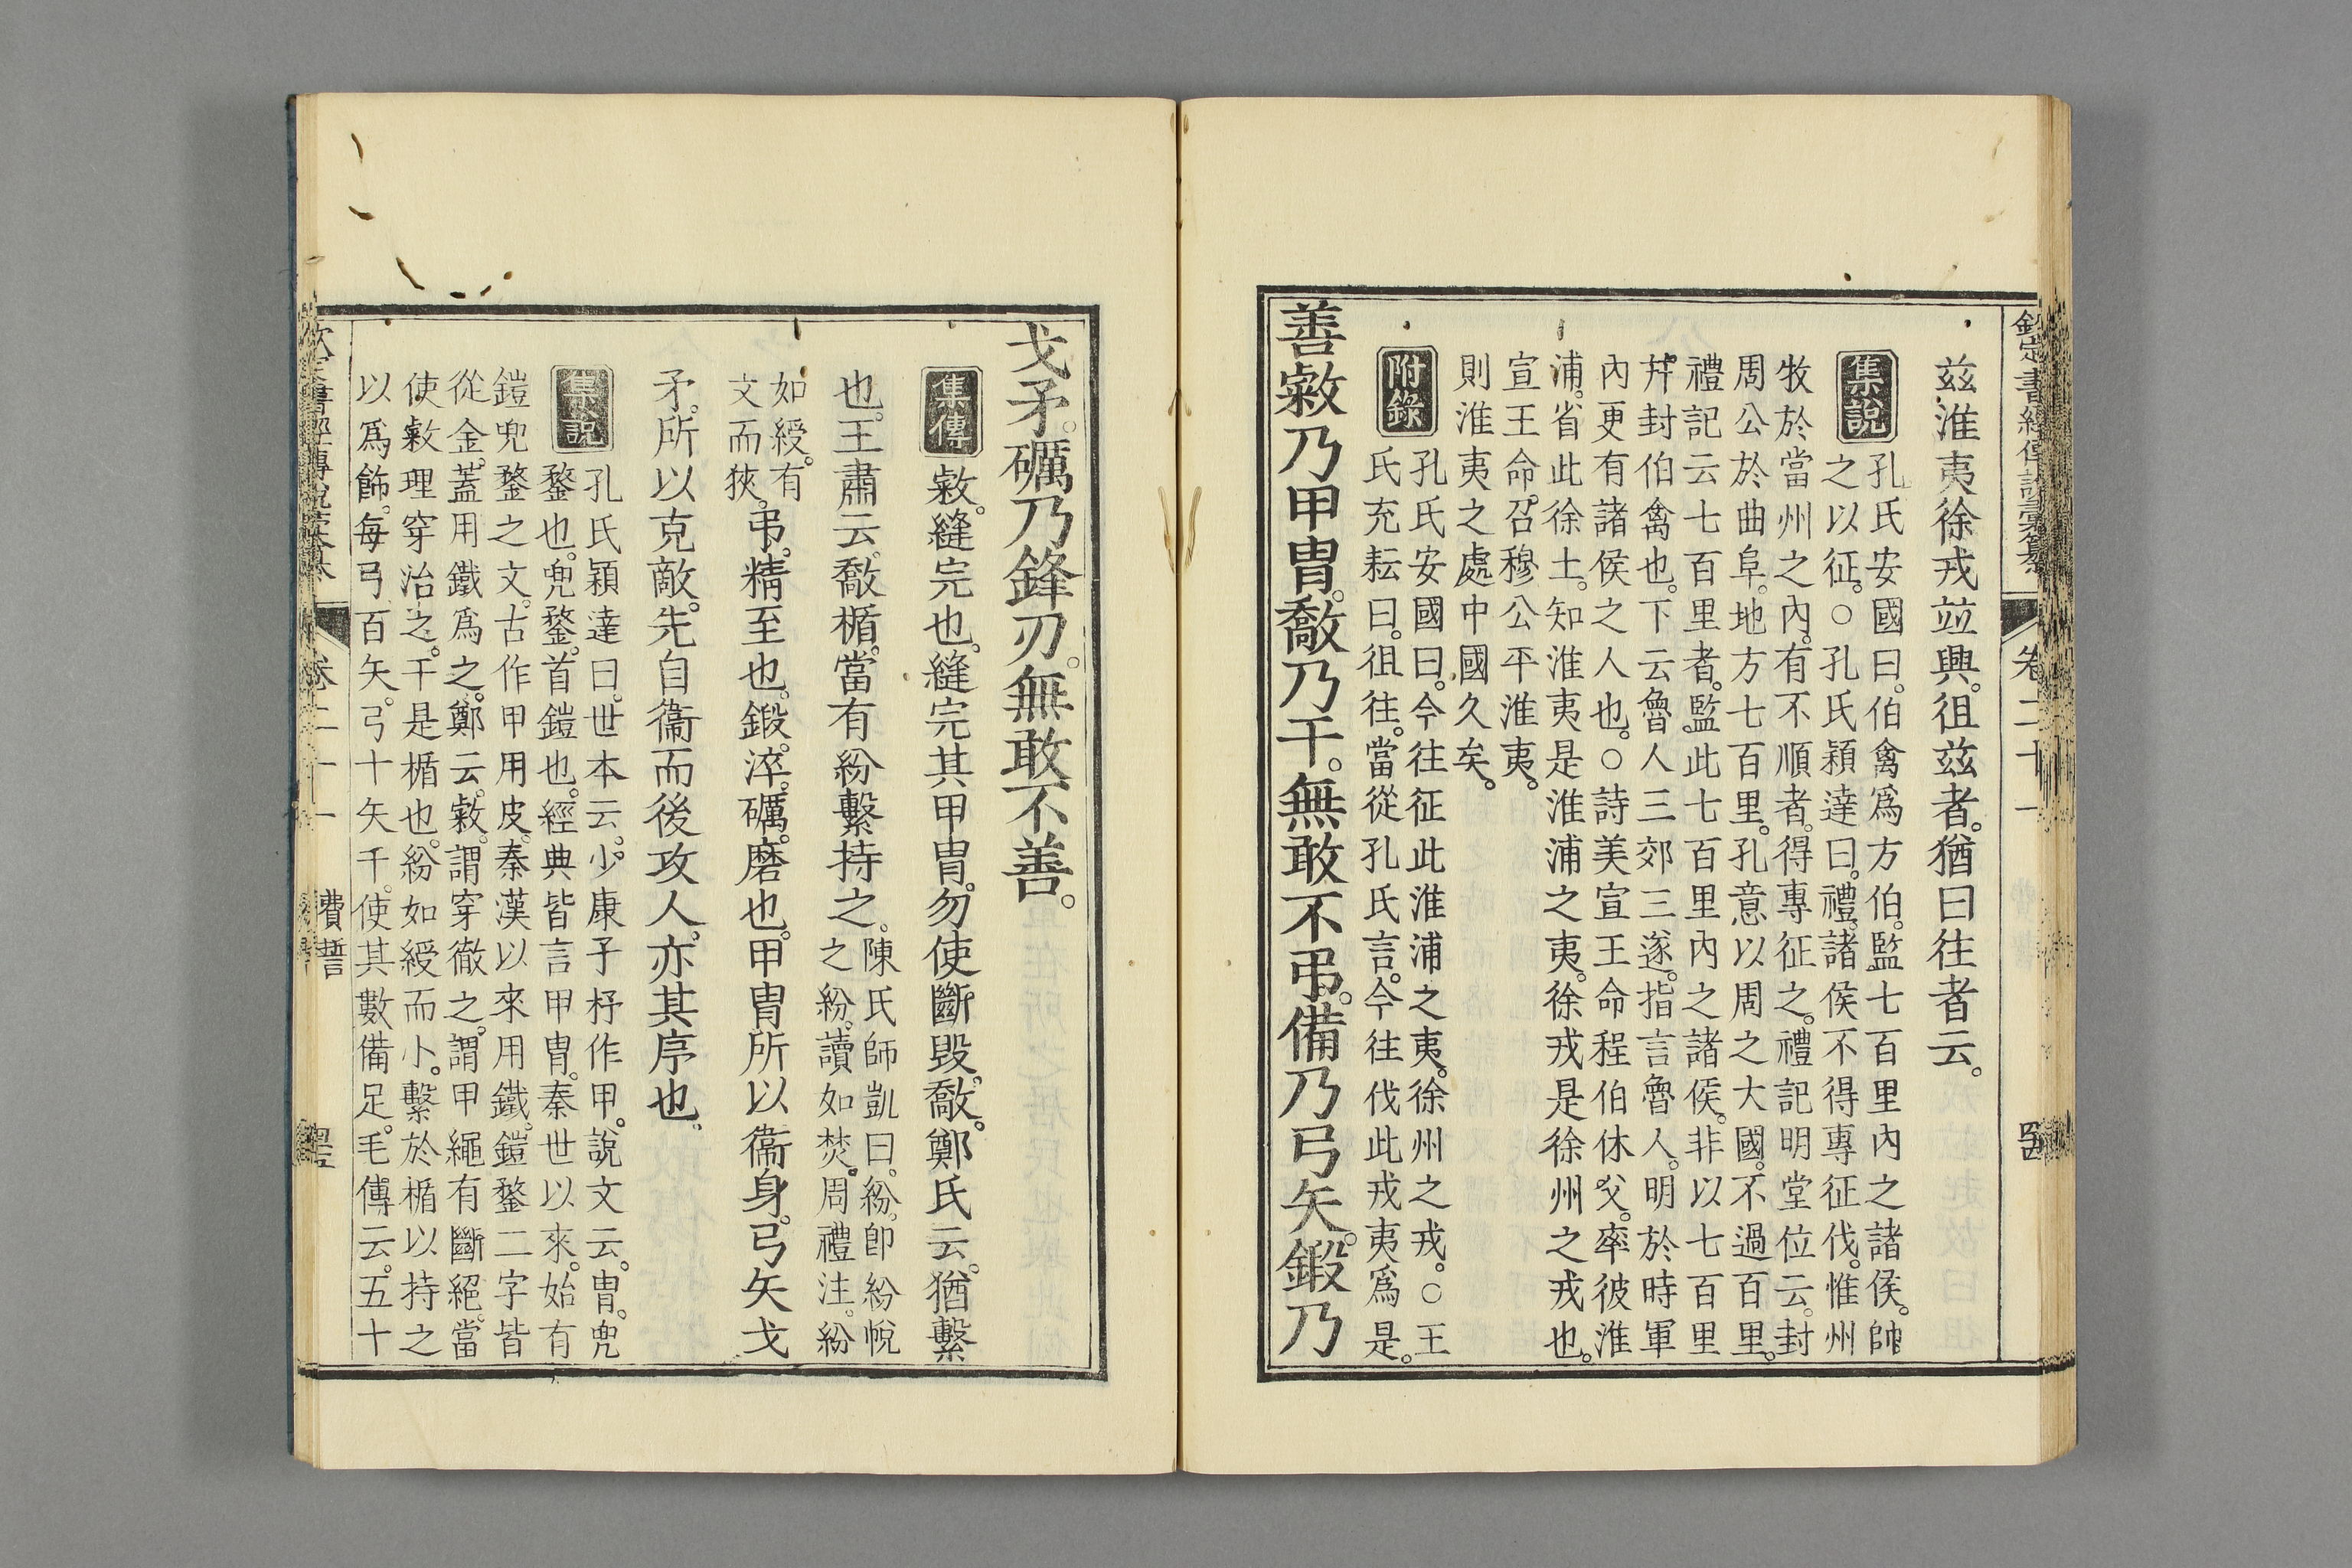 欽定書經傳說彙纂 卷二十一
茲淮夷徐戎竝興。徂茲者。猶曰往者云。
集說
孔氏安國曰。伯禽爲方伯。監七百里內之諸侯。帥
之以征。○孔氏穎達曰。禮。諸侯不得專征伐。惟州
牧於當州之內。有不順者。得專征之。禮記明堂位云。封
周公於曲阜。地方七百里。孔意以周之大國。不過百里。
禮記云七百里者。監此七百里內之諸侯。非以七百里
幷封伯禽也。下云魯人三郊三遂。指言魯人。明於時軍
內更有諸侯之人也。○詩美宣王命程伯休父。率彼淮
浦。省此徐土。知淮夷是淮浦之夷。徐戎是徐州之戎也。
宣王命。召穆公平淮夷。
則淮夷之處中國久矣。
附錄
孔氏安國曰。今往征此淮浦之夷。徐州之戎。○王
氏充耘曰。徂往。當從孔氏言。今往伐此戎夷爲是。
善敹乃甲冑。敿乃干。無敢不弔。備乃弓矢。鍛乃
戈矛。礪乃鋒刃。無敢不善。
集傳
敹。縫完也。縫完其甲冑。勿使斷毀。敿。鄭氏云。猶繫
也。王肅云。敿楯。當有紛繫持之。
陳氏師凱曰。紛。卽紛帨
之紛。讀如焚。周禮注。紛
如綬。有
文而狹。
弔。精至也。鍛。淬。礪。磨也。甲冑所以衞身。弓矢戈
矛。所以克敵。先自衞而後攻人。亦其序也。
集說
孔氏穎達曰。世本云。少康子杼作甲。說文云。冑。兜
鍪也。兜鍪。首鎧也。經典皆言甲冑。秦世以來。始有
鎧兜鍪之文。古作甲用皮。秦漢以來用鐵。鎧鍪二字皆
從金。蓋用鐵爲之。鄭云。敹。謂穿徹之。謂甲繩有斷絕。當
使敹理穿治之。干是楯也。紛如綬而小。繫於楯以持之
以爲飾。每弓百矢。弓十矢千。使其數備足。毛傳云。五十
欽定書經傳說彙纂 卷二十一 費誓